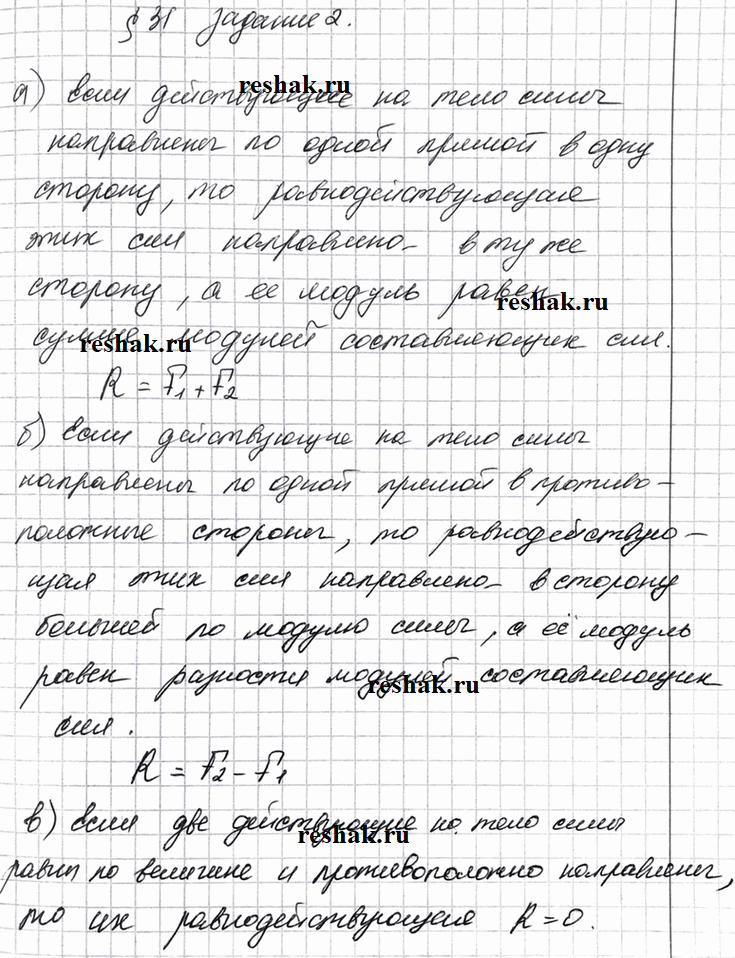 § 31 задание 2.
а) если действующие на тело силы
reshak.ru
направлены по одной прямой в одну
сторону, то равнодействующая
этих сил направлена в ту же
сторону, а ее модуль равен
reshak.ru
сумме модулей составляющих сил.
reshak.ru
R = F₁ + F₂
б) если действующие на тело силы
направлены по одной прямой в противо-
положные стороны, то равнодействую-
щая этих сил направлена в сторону
большей по модулю силы, а её модуль
равен разности модулей составляющих
reshak.ru
сил.
R = F₂ - F₁
в) если две действующие на тело силы
reshak.ru
равны по величине и противоположно направлены,
то их равнодействующая R = 0.